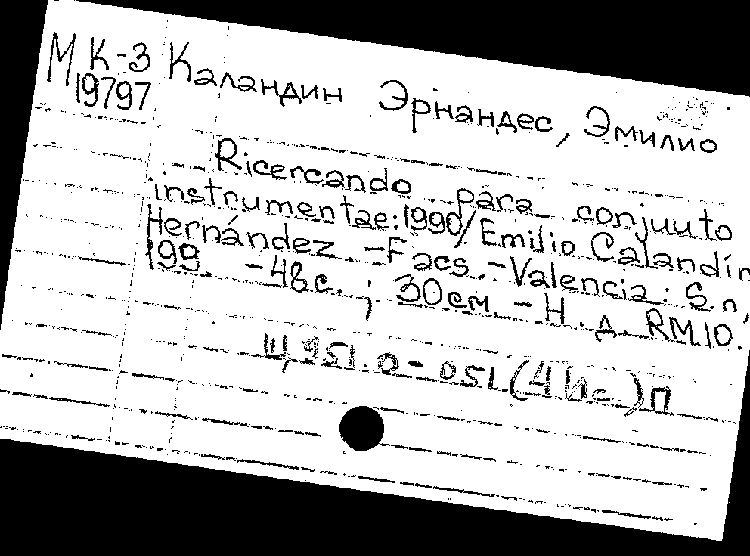 М К-3 Каландин Эрнандес, Эмилио
19797
Ricercando para conjuuto
instrumentae: 1990/Emilio Calandín
Hernández. - Facs. - Valencia: S.n,
199. - 48c.; 30см. - Н. д. RM.10.
Щ951.0-051(4Ис)П